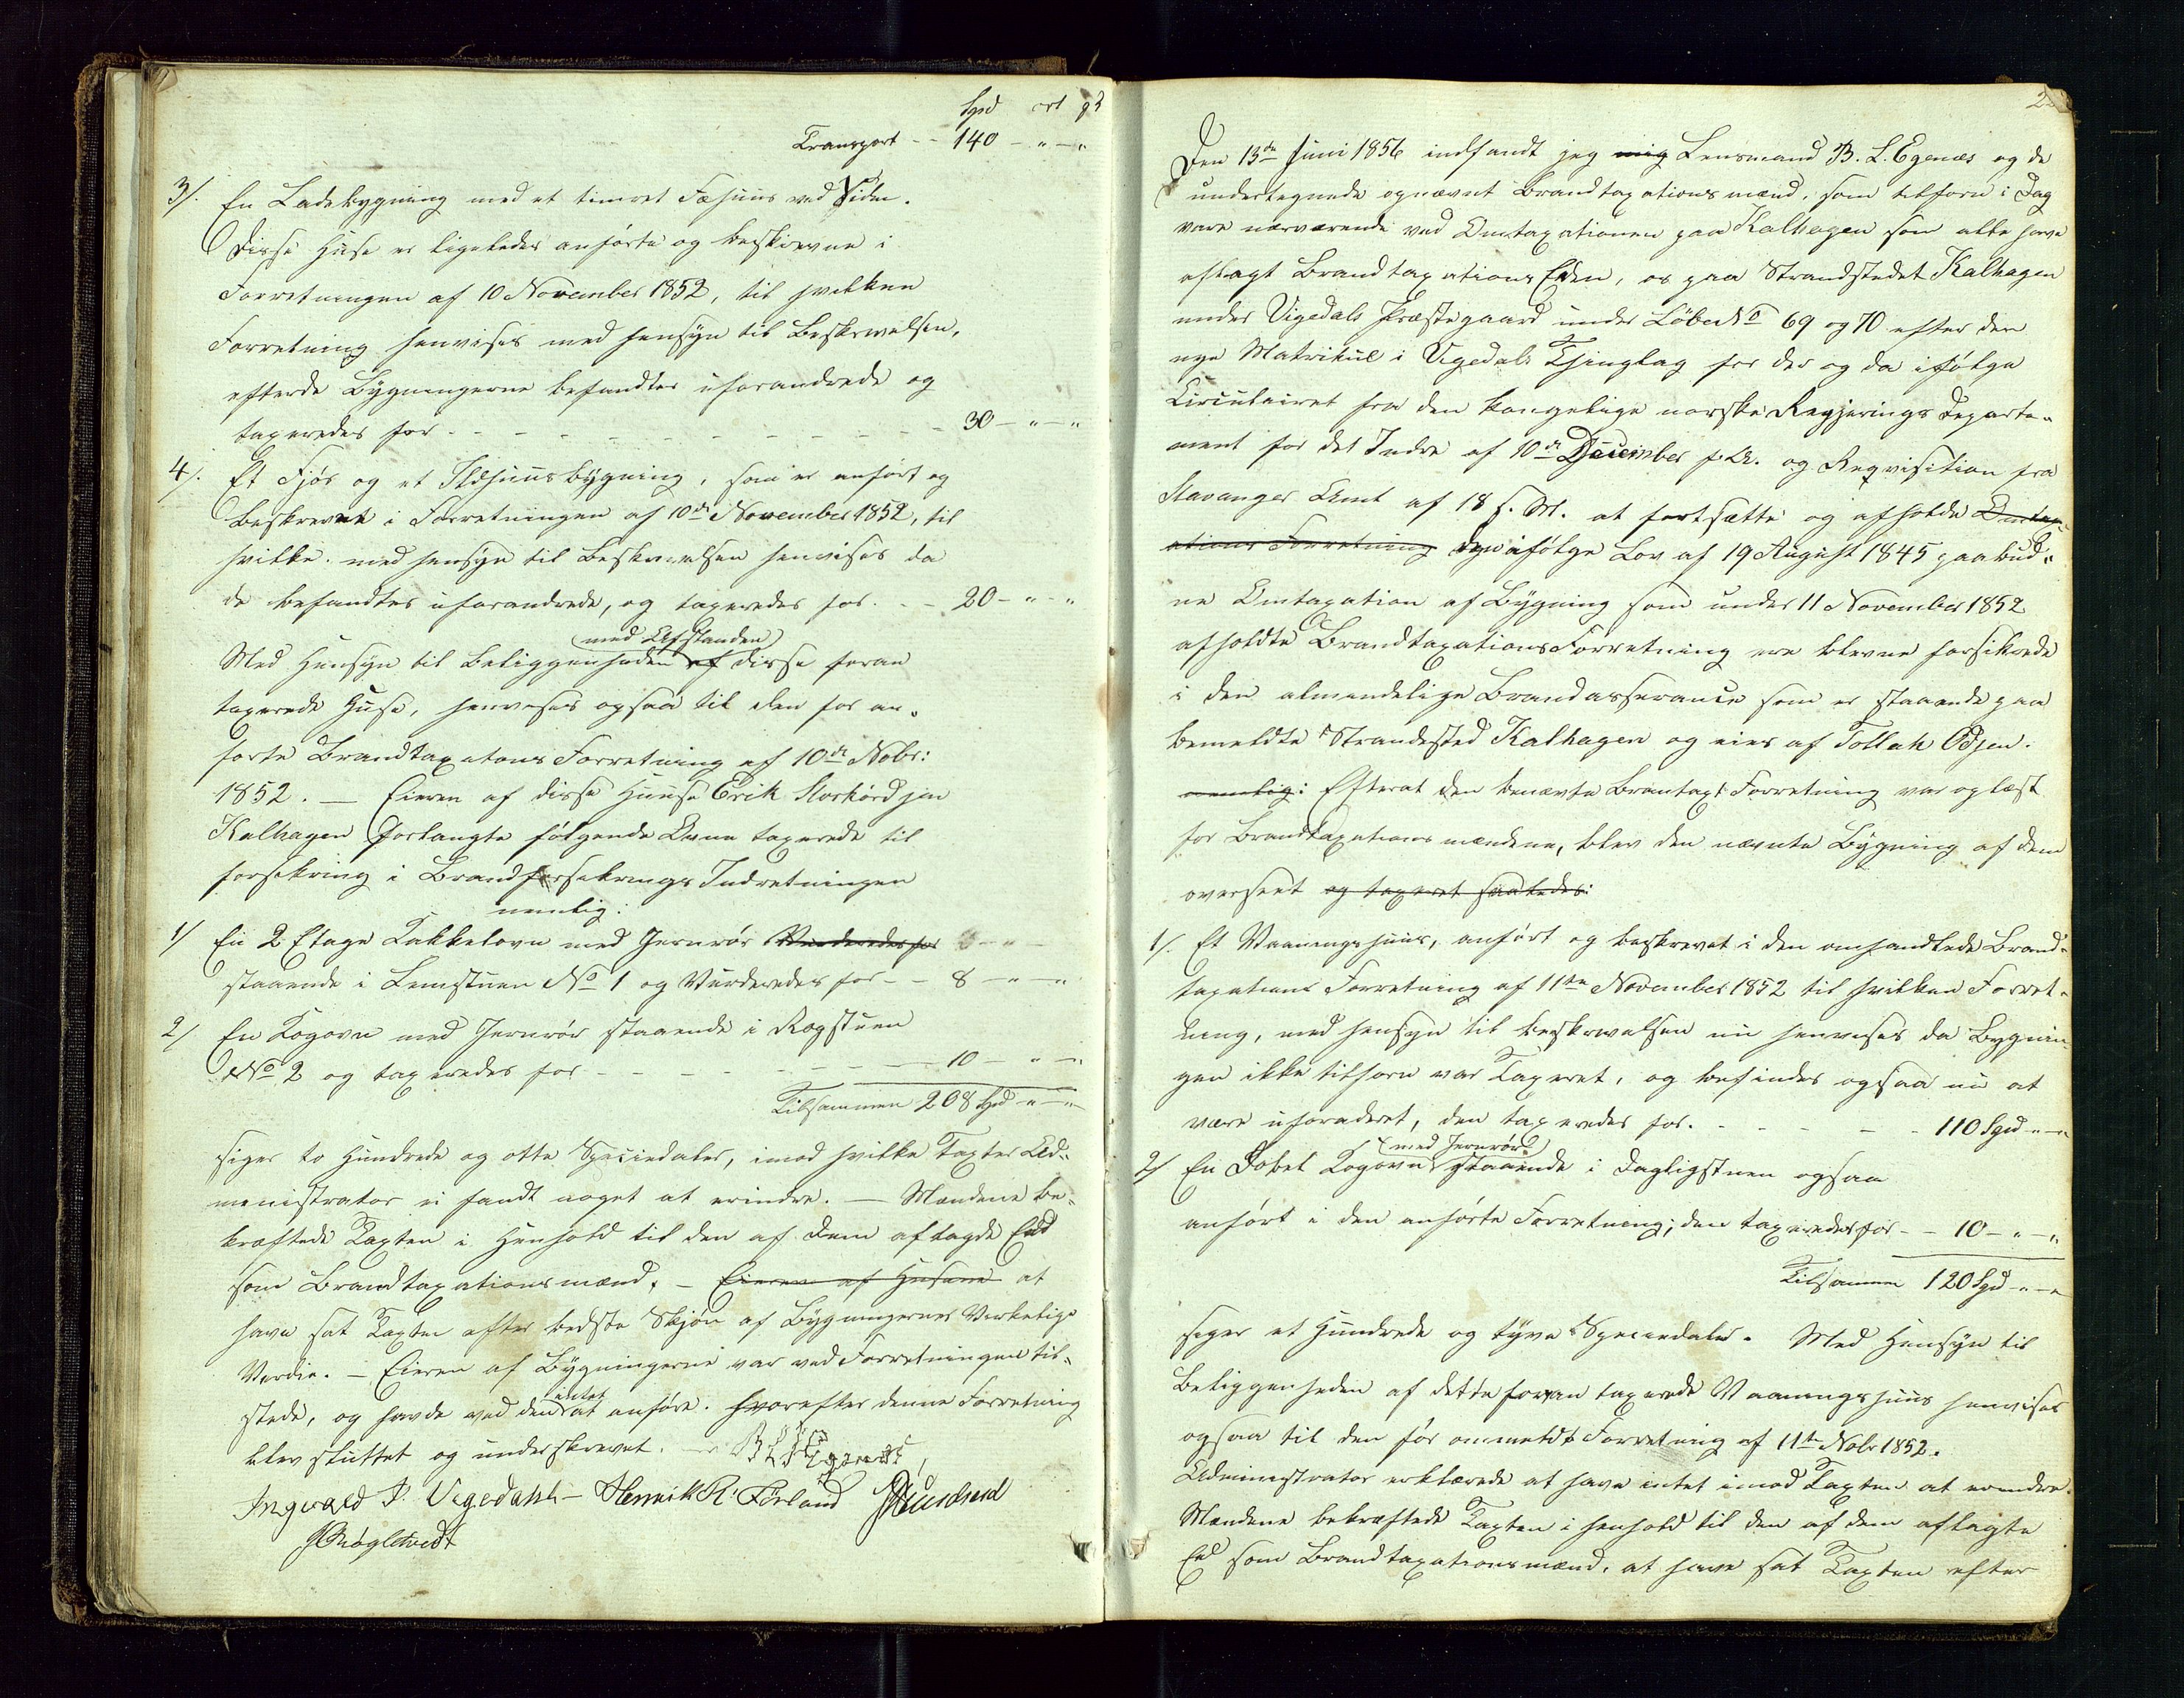 Spd ort ß
Transport - - 140 - " - "
3/. En Ladebygning med et timret Fæhuus ved Siden.
Disse Huse er ligeledes anførte og beskrevne i
Forretningen af 10 November 1852, til hvilken
Forretning henvises med hensyn til Beskrivelsen,
efterde Bygningerne befandtes uforandrede og
taxeredes for - - - - - - - - - - - 30 - " - "
4/. Et Fjøs og et Ildhuusbygning, som er anført og
beskrevet i Forretningen af 10de November 1852, til
hvilke med hensyn til Beskrivelsen henvises da
de befandtes uforandrede, og taxeredes for. - - 20 - " - "
med Afstanden
Med Hensyn til Beliggenheden af disse foran
taxerede Huse, henvises ogsaa til den for an-
førte Brandtaxations Forretning af 10de Nobr:
1852. — Eieren af disse Huuse Erik Storhordjen
Kalhagen forlangte følgende Ovne taxerede til
forsikring i Brandforsikrings Indretningen
nemlig:
1/ En 2 Etage Kakkelovn med Jernrør Vurderedes for 8 - " -
staaende i Lemstuen No 1 og Vurderedes for - - 8 - " - "
2/ En Kogovn med Jernrør staaende i Rogstuen
No 2 og taxeredes for - - - - - - - - 10 - " - "
Tilsammen 208 Spd - " - "
siger to Hundrede og otte Speciedaler, imod hvilke Taxter Ad-
ministrator ei fandt noget at erindre. — Mændene be-
kræftede Taxten i Henhold til den af dem aflagde Eed
som Brandtaxationsmænd, — Eieren af Husene at
have sat Taxten efter bedste Skjøn af Bygningernes Verkelige
Verdie. — Eieren af Bygningerne var ved Forretningen til-
intet
stede, og havde ved den at anføre. Hvorefter denne Forretning
blev sluttet og underskrevet. — B L Egenæs,
Ingvald P. Vigedahl — Henrik R. Førland
2
Den 13de Juni 1856 indfandt jeg mig Lensmand B. L. Egenæs og de
undertegnede opnævnt Brandtaxationsmænd, som tilforn i Dag
vare nærværende ved Omtaxationen paa Kalhagen som alle have
aflagt Brandtaxations Eden, os paa Strandstedet Kalhagen
under Vigedals Præstegaard under Løbe No 69 og 70 efter den
nye Matrikul i Vigedals Thinglag for der og da ifølge
Circulairet fra den kongelige norske Regjerings Departe-
ment for det Indre af 10de Decembr f. A. og Reqvisition fra
Stavanger Amt af 18 s. M. at fortsætte og afholde Omtax-
ations Forretning den ifølge Lov af 19 August 1845 paabud-
ne Omtaxation af Bygning som under 11 November 1852
afholdte Brandtaxations Forretning ere blevne forsikrede
i den almindelige Brandassurance som er staaende paa
bemeldte Strandsted Kalhagen og eies af Tollak Odjen.
nemlig: Efterat den benævnte Brantaxt Forretning var oplæst
for Brandtaxationsmændene, blev den nævnte Bygning af dem
overseet og taxeret saaledes:
1/. Et Vaaningshuus, anført og beskrevet i den omhandlede Brand-
taxations Forretning af 11te November 1852 til hvilken Forret-
ning, med hensyn til beskrivelsen nu henvises da Bygnin-
gen ikke tilforn var Taxeret, og befindes ogsaa nu at
være uforandret, den taxeredes for. - - - - - 110 Spd - " - "
med Jernrør
2/ En Dobel Kogovn staaende i Dagligstuen ogsaa
anført i den anførte Forretning; den taxeredes for - - 10 - " - "
Tilsammen 120 Spd - " - "
siger et Hundrede og tyve Speciedaler. Med Hensyn til
Beliggenheden af dette foran taxerede Vaaningshuus henvises
ogsaa til den før ommeldt Forretning af 11te Nobr 1852.
Administrator erklærede at have intet imod Taxten at erindre.
Mændene bekræftede Taxten i henhold til den af dem aflagte
Eed som Brandtaxationsmænd, at have sat Taxten efter